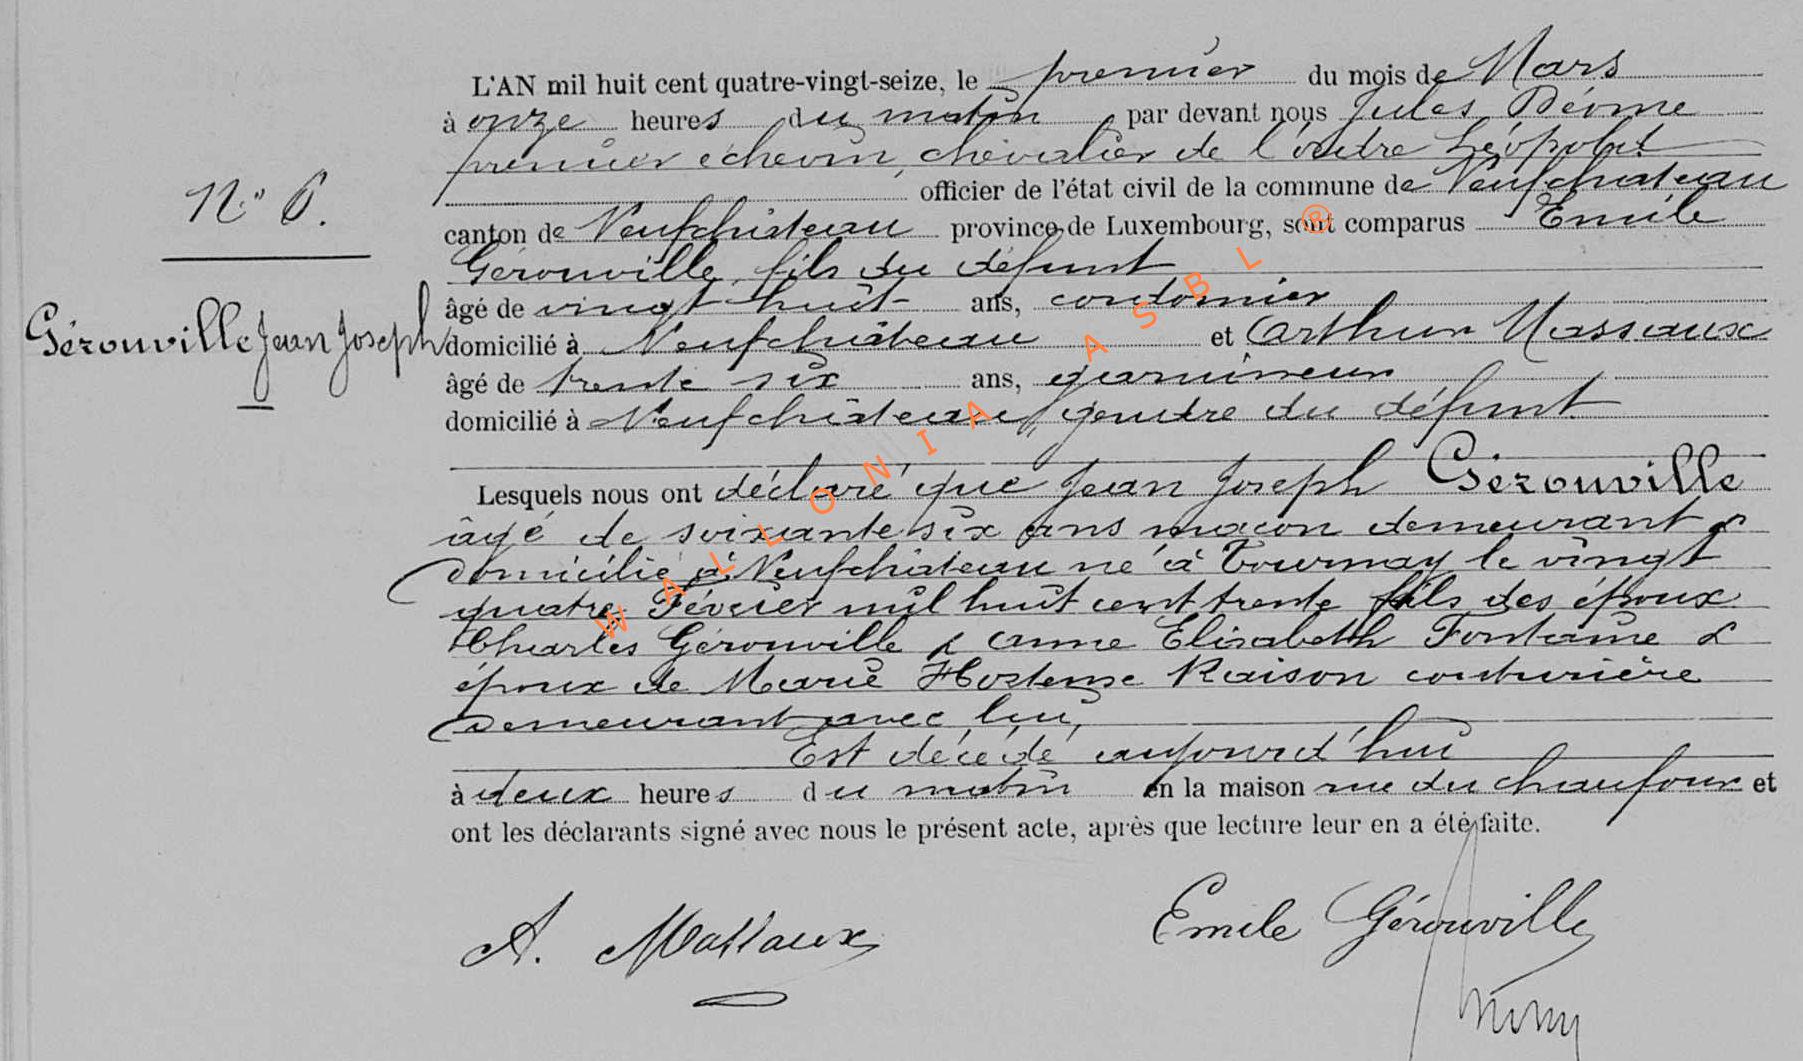 L'AN mil huit cent quatre-vingt-seize, le premier du mois de Mars
à onze heures du matin par devant nous Jules
premier échevin, chevalier de l'ordre Léopold
officier de l'état civil de la commune de Neufchateau
N° 6.
canton de Neufchâteau province de Luxembourg, sont comparus Emile
Gérouville, fils du défunt
âgé de vingt huit ans, cordonnier
Gérouville Jean Joseph
domicilié à Neufchâteau et Arthur Massaux
âgé de trente six ans, garnisseur
domicilié à Neufchâteau, gendre du défunt
Lesquels nous ont déclaré que Jean Joseph Gérouville
âgé de soixante six ans maçon demeurant &
domicilié à Neufchâteau né à Tournay le vingt
quatre Février mil huit cent trente fils des époux
Charles Gérouville & Anne Elisabeth Fontaine &
époux de Marie Hortense Raison couturière
demeurant avec lui,
Est décédé aujourd'hui
à deux heures du matin en la maison rue du chaufour et
ont les déclarants signé avec nous le présent acte, après que lecture leur en a été faite.
A. Massaux
Emile Gérouville
WALLONIA ASBL ®